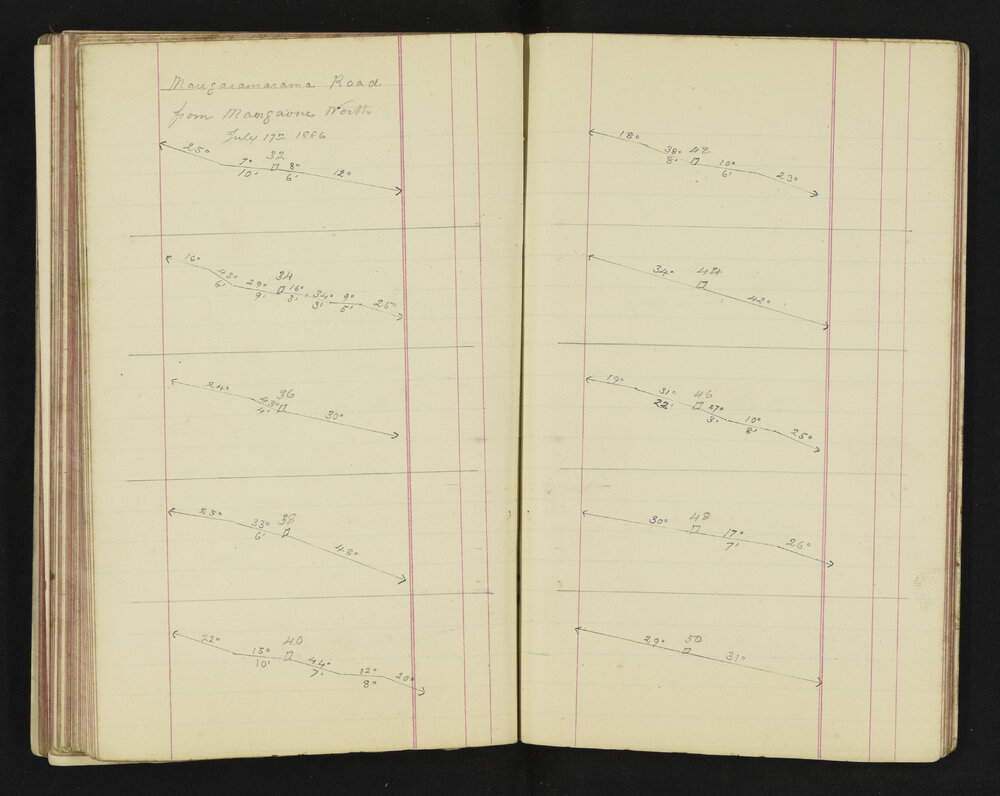 Mangaramarama Road
from Mangaone North
July 17th 1886
25° 7° 32 8° 12°
10' 6'
16° 43° 29° 34 16° 34° 9° 25°
6' 9' 3' 3' 5'
24° 43° 36 30°
4'
25° 33° 38 48°
6'
22° 15° 40 44° 12° 20°
10' 7' 8°
18° 38° 42 10° 23°
8' 6'
34° 44 42°
19° 31° 46 27° 10° 25°
22' 3' 8'
30° 48 17° 26°
7'
29° 50 31°